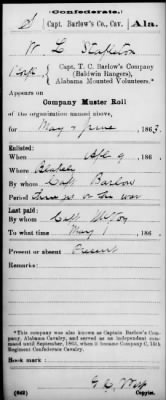 S | Capt. Barlow's Co., Cav. | Ala.
W L Stapleton
Capt. T. C. Barlow's Company
(Baldwin Rangers),
Alabama Mounted Volunteers.*
Appears on
Company Muster Roll
of the organization named above,
for May & June, 1863.
Enlisted:
When 9, 186
Where Blakely
By whom Capt Barlow
Period three yrs or the war
Last paid:
By whom Capt McVoy
To what time May 1, 186
Present or absent Present
Remarks:
*This company was also known as Captain Barlow's Company, Alabama Cavalry, and served as an independent command until September, 1863, when it became Company C, 15th Regiment Confederate Cavalry.
Book mark:
(642)
Copyist.